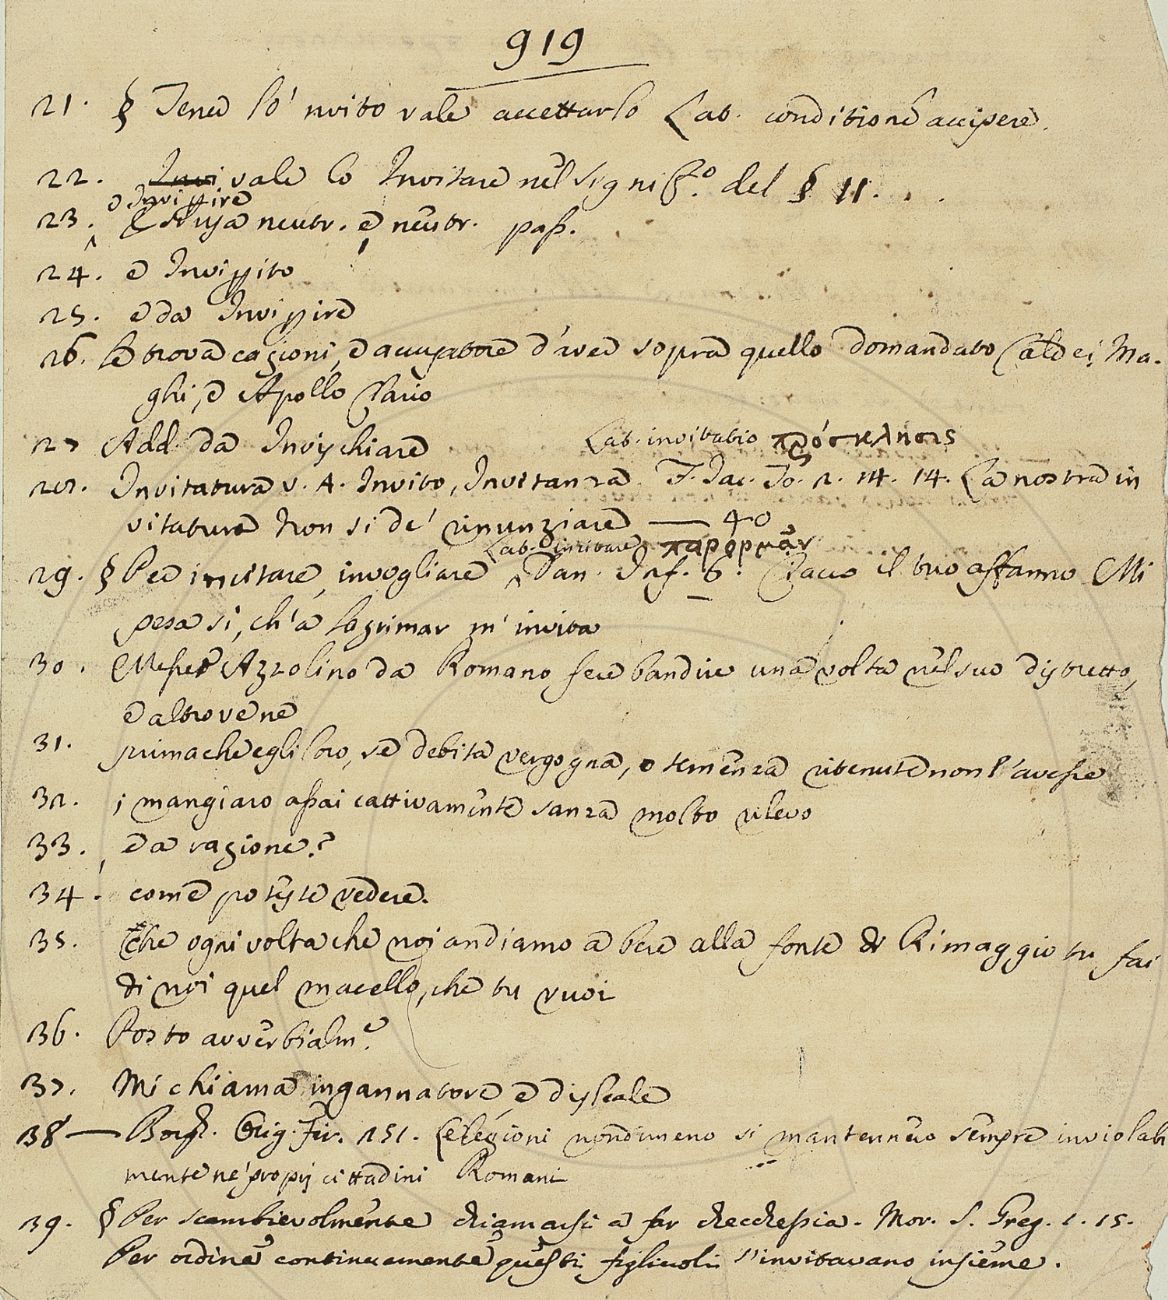 919
21. § Tener lo 'nvito vale accettarlo Lat. conditione accipere.
22. vale lo Invitare nel signifo. del § 11. . .
o Invissire
23. neutr. e neutr. pass.
24. e Invissito
25. e da Invissire
26. Le trova cagioni, e accusatore d'aver sopra quello domandato Caldei, Ma-
ghi, e Apollo Clario
27 Add. da Invischiare Lat. invitatio πρόσκλησις
28. Invitatura v. A. Invito, Invitanza. F. Iac. To. 2. 14. 14. La nostra in
vitatura Non si de' rinunziare — 40
Lat. incitare, παρορμᾶν
29. § Per incitare, invogliare Dan. Inf. 6. Ciacco il tuo affanno Mi
pesa sì, ch' a lagrimar m' invita
30. Messer Azzolino da Romano fece bandire una volta nel suo distretto,
e altrove ne
31. prima che egli loro, se debita vergogna, o temenza ritenute non l'avesse
32. i mangiaro assai cattivamente sanza molto rilevo
33. e a ragione?
34. come poteste vedere.
35. Che ogni volta che noi andiamo a bere alla fonte di Rimaggio tu fai
di noi quel macello, che tu vuoi
36. Posto avverbialme.
37. Mi chiama ingannatore, e disleale
38 — Borgh. Orig. Fir. 151. Le legioni nondimeno si mantennero sempre inviolabil
mente ne' proprj cittadini Romani
39. § Per scambievolmente chiamarsi a far checchessia. Mor. S. Greg. 1. 15.
Per ordine continuamente questi figliuoli s'invitavano insieme.